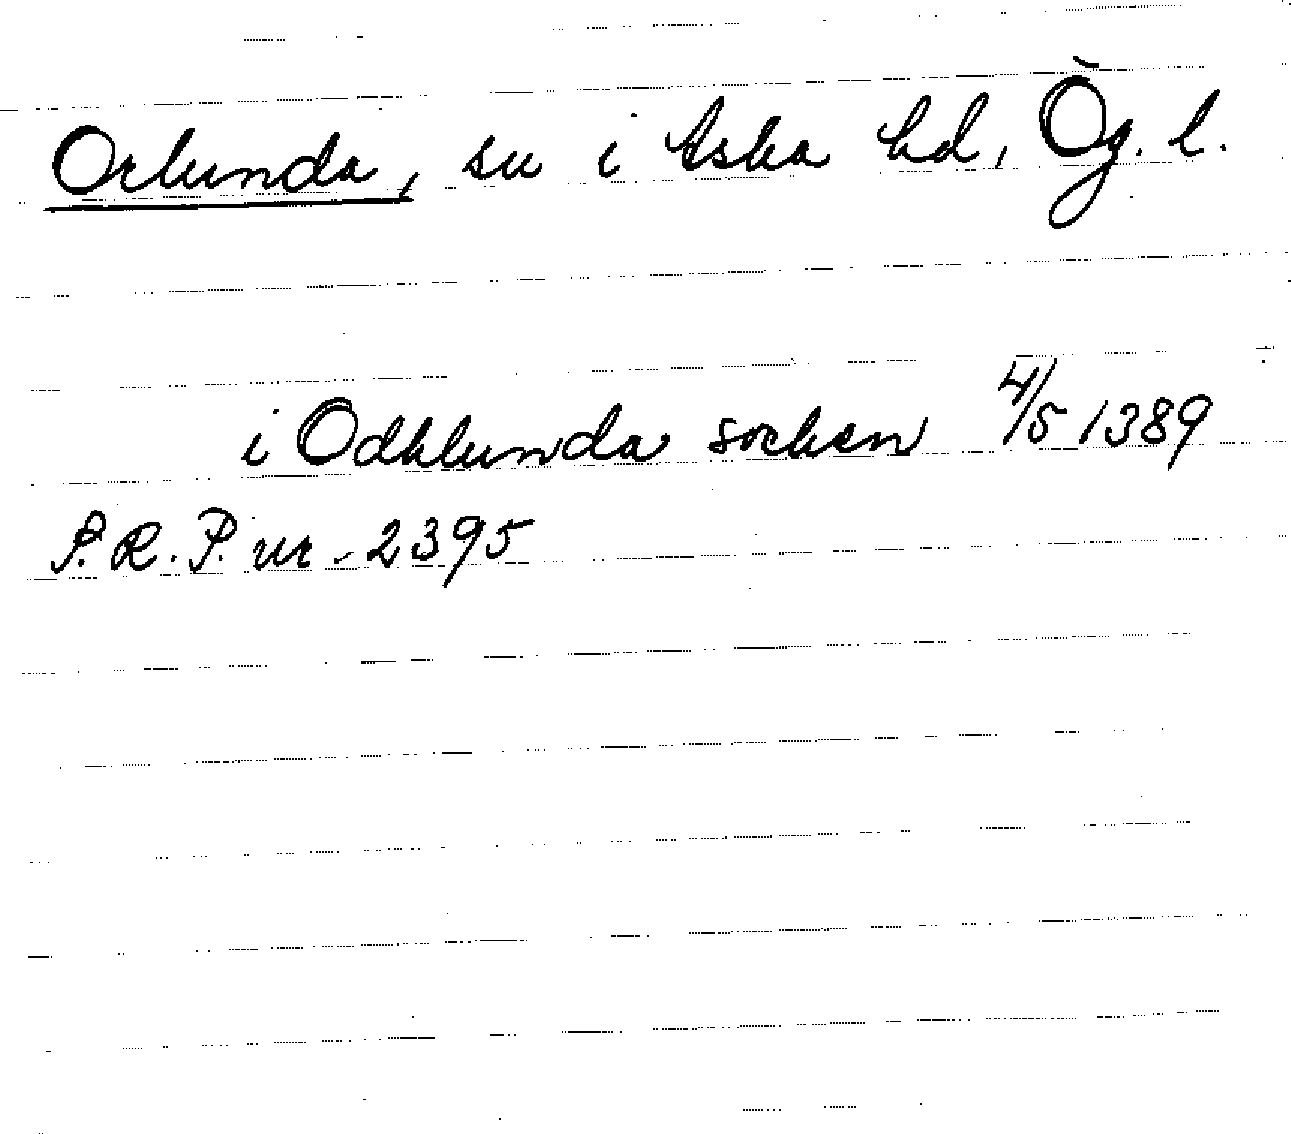 Orlunda, sn i Aska hd, Ög. l.
i Odhlunda socken 4/5 1389
P.R.P. nr. 2395